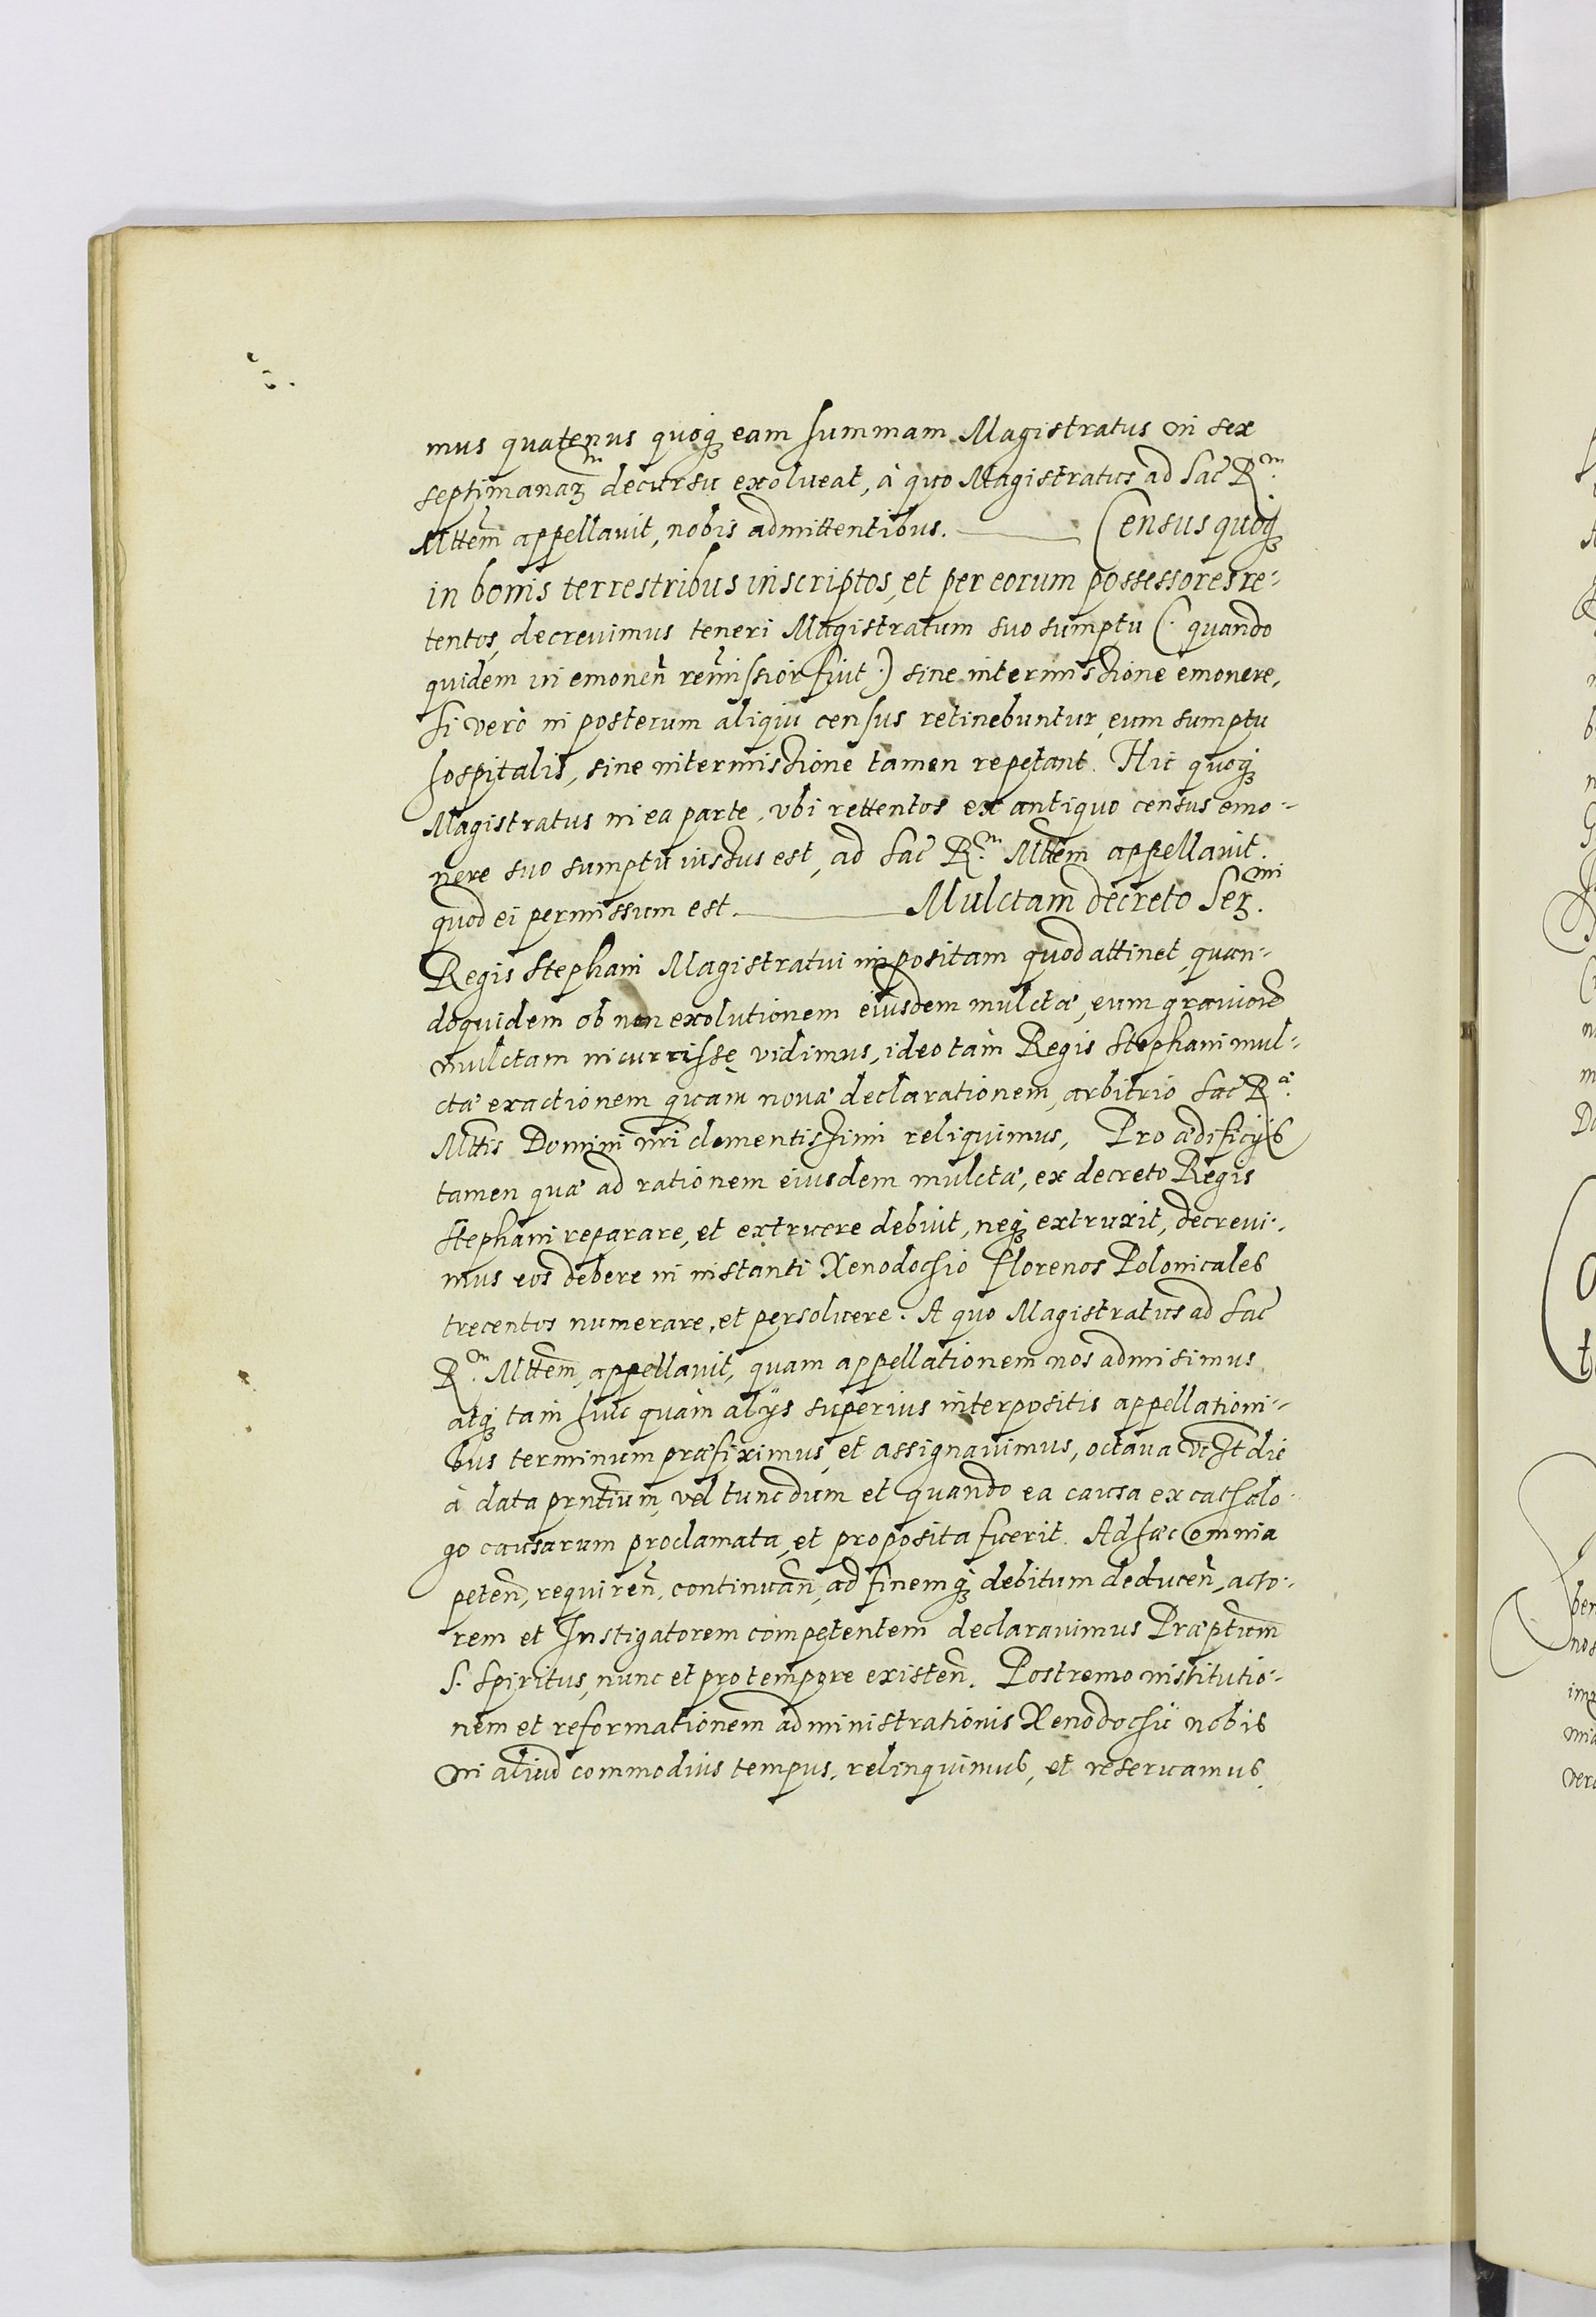 mus quatenus quoq̨ eam summam Magistratus in sex
septimanaꝝ decursu exolueat, à quo Magistratus ad Sac̃ R.ᵐ
Mttem̃ appellauit, nobis admittentibus. Census quoq̨
in bonis terrestribus inscriptos, et per eorum possessores re-
tentos, decreuimus teneri Magistratum suo sumptu (. quando
quidem in emoneñ remissior fuit .) sine intermissione emonere,
Si verò in posterum aliqui census retinebuntur, eum sumptu
hospitalis, sine intermissione tamen repetant. Hic quoq̨
Magistratus in ea parte, vbi rettentos ex antiquo census emo-
nere suo sumptu iussus est, ad Sac̃ R.ᵐ Mttem̃ appellauit.
quod ei permissum est. Mulctam decreto Ser.ᵐⁱ
Regis Stephani Magistratui impositam quod attinet, quan-
doquidem ob non exolutionem eiusdem mulctæ, eum grauiorẽ
mulctam incurrisse vidimus, ideo tam Regis Stephani mul-
ctæ exactionem quam nouæ declarationem, arbitrio Sac̃ R.æ
Mttis Domini nr̃i clementissimi reliquimus, Pro ædificijs
tamen quæ ad rationem eiusdem mulctæ, ex decreto Regis
Stephani reparare, et extruere debuit, neq̨ extruxit, decreui-
mus eos debere in instanti Xenodochio florenos Polonicales
trecentos numerare, et persoluere. A quo Magistratus ad Sac̃
R.ᵐ Mttem̃, appellauit, quam appellationem nos admisimus
atq̨ tam huic quàm alijs superius interpositis appellationi-
bus terminum præfiximus, et assignauimus, octaua die
à data prñtium, vel tunc dum et quando ea causa ex cathalo-
go causarum proclamata, et proposita fuerit. Ad hæc omnia
peteñ, requireñ, continuañ, ad finemq̨ debitum deduceñ, acto-
rem et Instigatorem competentem declarauimus Præptum̃
S. Spiritus, nunc et pro tempore existeñ. Postremo institutio-
nem et reformationem administrationis Xenodochij nobis
in aliud commodius tempus, relinquimus, et reseruamus.